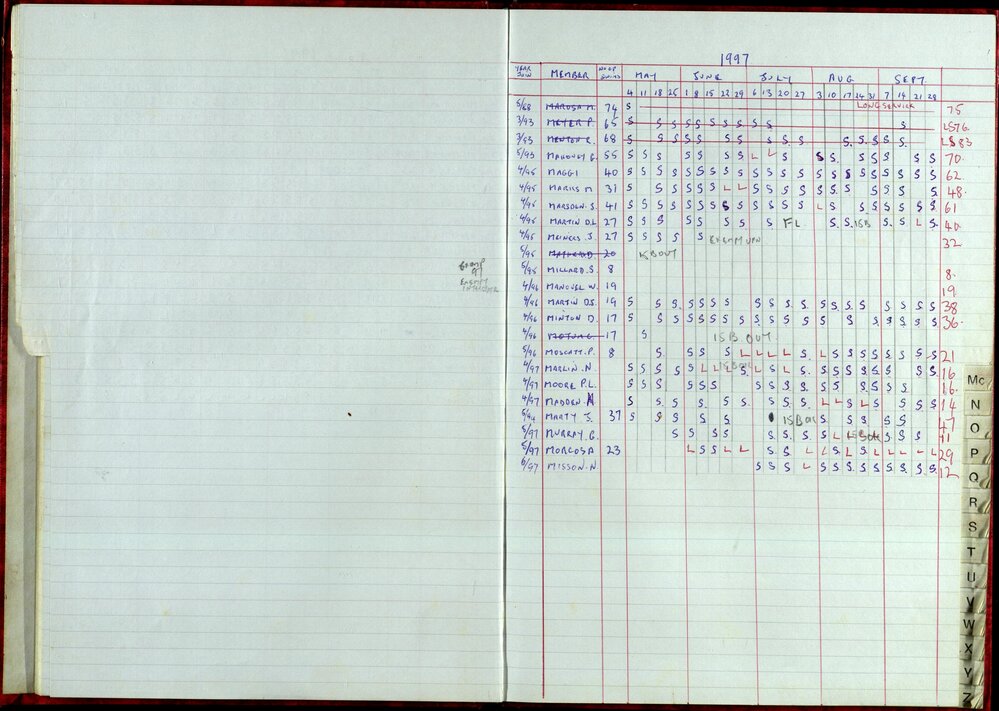 1997
YEAR JOIN MEMBER NO OF SWIMS MAY JUNE JULY AUG SEPT.
4 11 18 25 1 8 15 22 29 6 13 20 27 3 10 17 24 31 7 14 21 28
5/68 MAROSA M. 74 S LONG SERVICE 75
3/93 MEYER P. 65 S S S S S S S S S S S S LS76
3/93 MENTON R. 68 S S S S S S S S S S S. S. S S LS 83
5/93 MAHONEY B. 55 S S S S S S S L L S S S. S S S S S 70
4/95 MAGGI 40 S S S S S S S S S S S S S S S S S S S S S S 62
4/95 MARKS M 31 S S S S S S S L L S S S S S S S S S S S 48
4/95 MARSDEN. S. 41 S S S S S S S S S S S S S L S S S S S S S 61
4/95 MARTIN D.L 27 S S S S S S S S FL S S. ISB S S L S 40
4/95 MEINERS. J. 27 S S S S S EXEMPT UPN 32
5/95 20 ISB OUT
5/95 MILLARD. S. 8 8.
EXEMPT
4/96 MANOUEL W. 19 19
4/96 MARTIN D.S. 19 S S S. S S S S S S S S S S S S S S S S 38
4/96 MINTON D. 17 S S S S S S S S S S S S S S S S S S S 36
4/96 17 S ISB OUT
5/96 MOSCATT. P. 8 S. S S S L L L L S. L S S S S S S S S 21
4/97 MARLIN. N. S S S S S L L L S L S L S. S S S S S S S S 16
4/97 MOORE P.L. S S S S S S S S S S S S S S S S 16
4/97 MADDEN. A S S S S. S S S S S L L S L S S S S 14
5/94 MARTY J. 37 S S S S S ISB OUT S S S S 47
5/97 MURRAY. G. S S S S S S. S S L L S S S 11
5/97 MORGOSA 23 L S S L L S S L L S L S L L L L L 29
6/97 MISSON. N. S S S L S S S S S S S S S 12
Mc
N
O
P
Q
R
S
T
U
V
W
X
Y
Z